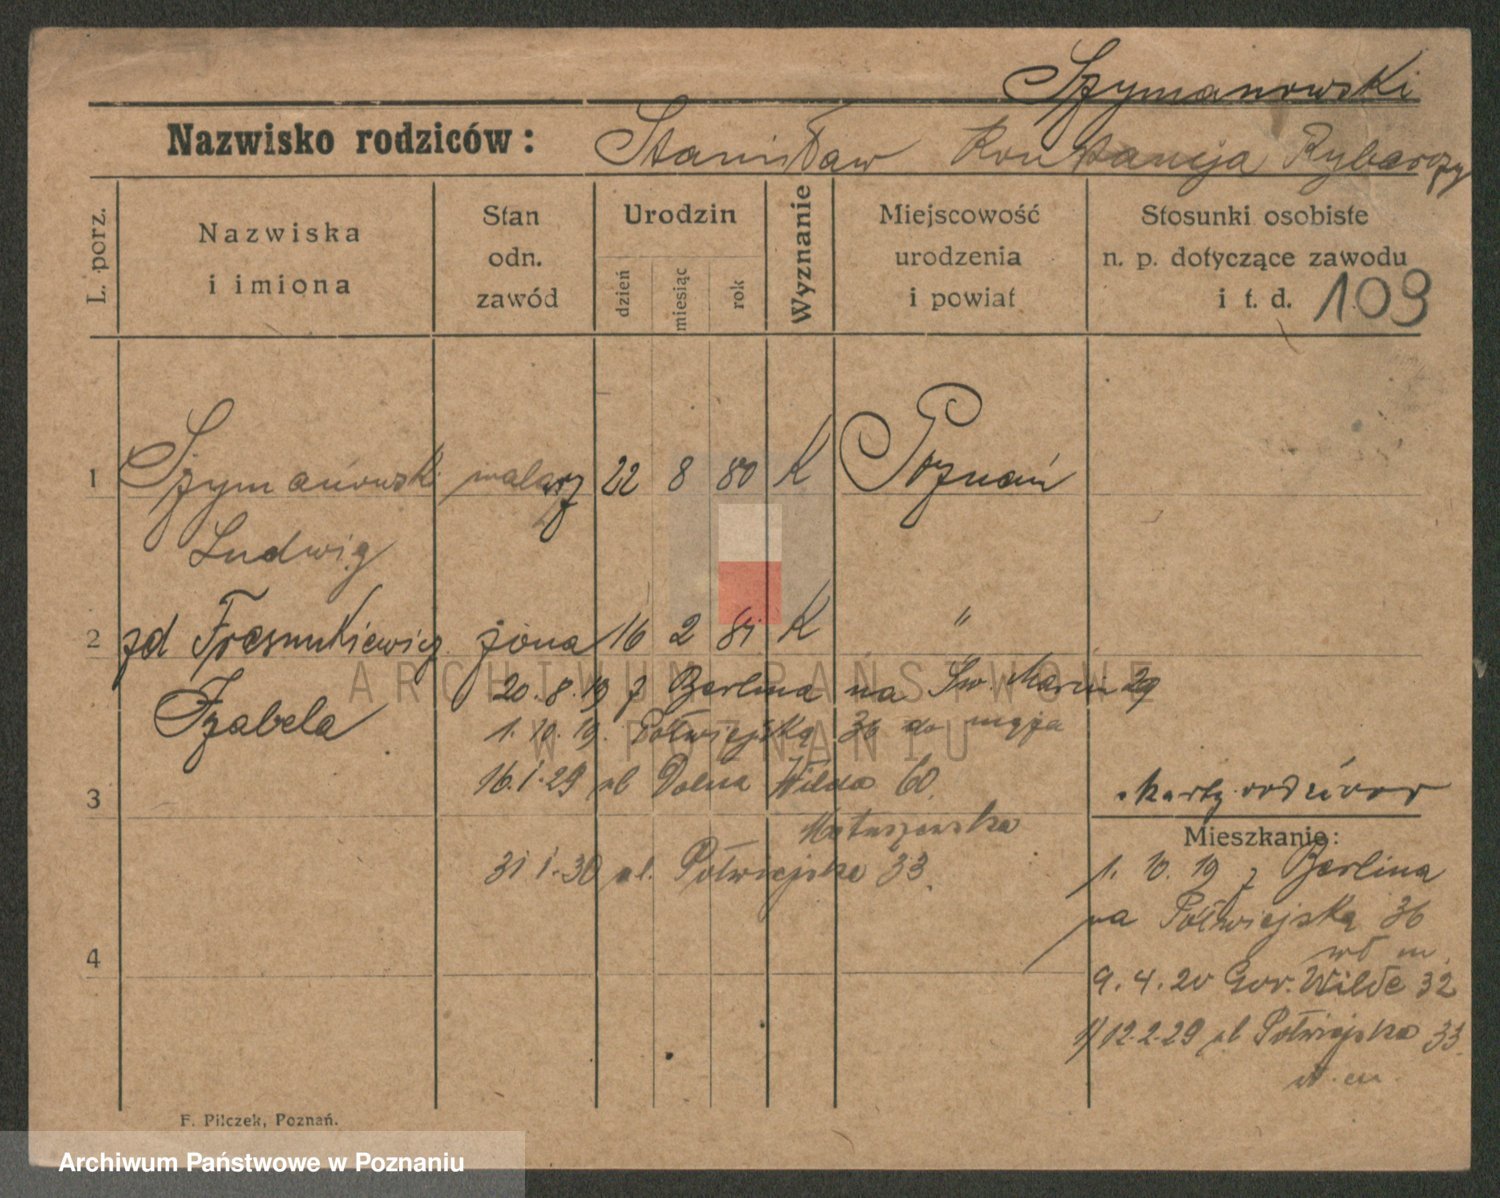 Szymanowski
Nazwisko rodziców: Stanisław Konstancja Rybarczy
L. porz.
Nazwiska i imiona
Stan odn. zawód
Urodzin
dzień
miesiąc
rok
Wyznanie
Miejscowość urodzenia i powiat
Stosunki osobiste n. p. dotyczące zawodu i t. d. 109
1 Szymanowski malarz 22 8 80 K Poznań
Ludwig
2 zd żona 16 2 81 K "
Izabela
20.8.19 z Berlina na Św. Marcin 29
1.10.19. Półwiejską 36 do męża
16.1.29 ul Dolna Wilda 60.
3
Matuszewska
31.1.30 ul. Półwiejska 33.
4
karty
Mieszkanie:
1. 10. 19 z Berlina
na Półwiejską 36
wł m.
9. 4. 20 Gór. Wilde 32
1/ 12.2.29 ul Półwiejska 33.
F. Pilczek, Poznań.
ARCHIWUM PAŃSTWOWE
W POZNANIU
Archiwum Państwowe w Poznaniu